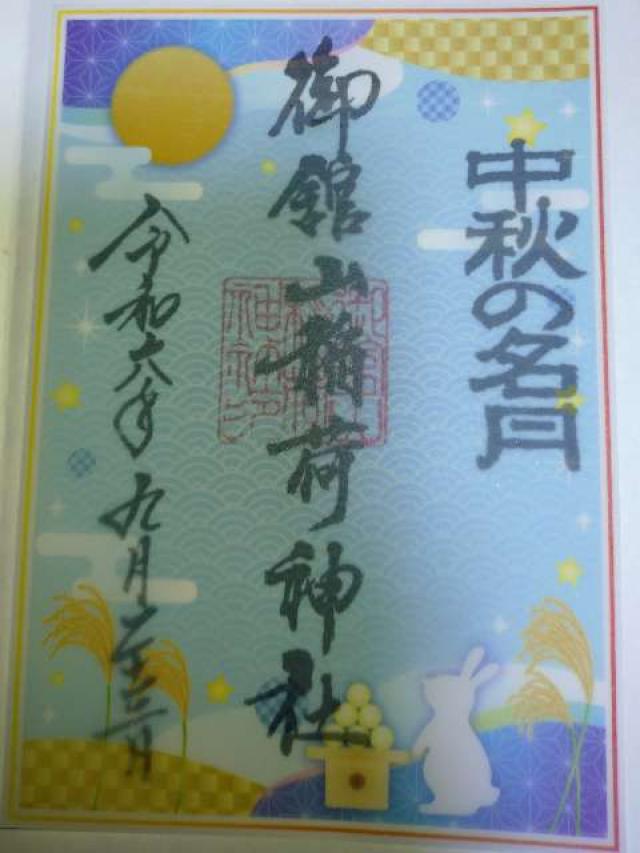 中秋の名月
御館山稲荷神社
令和六年九月二十三日